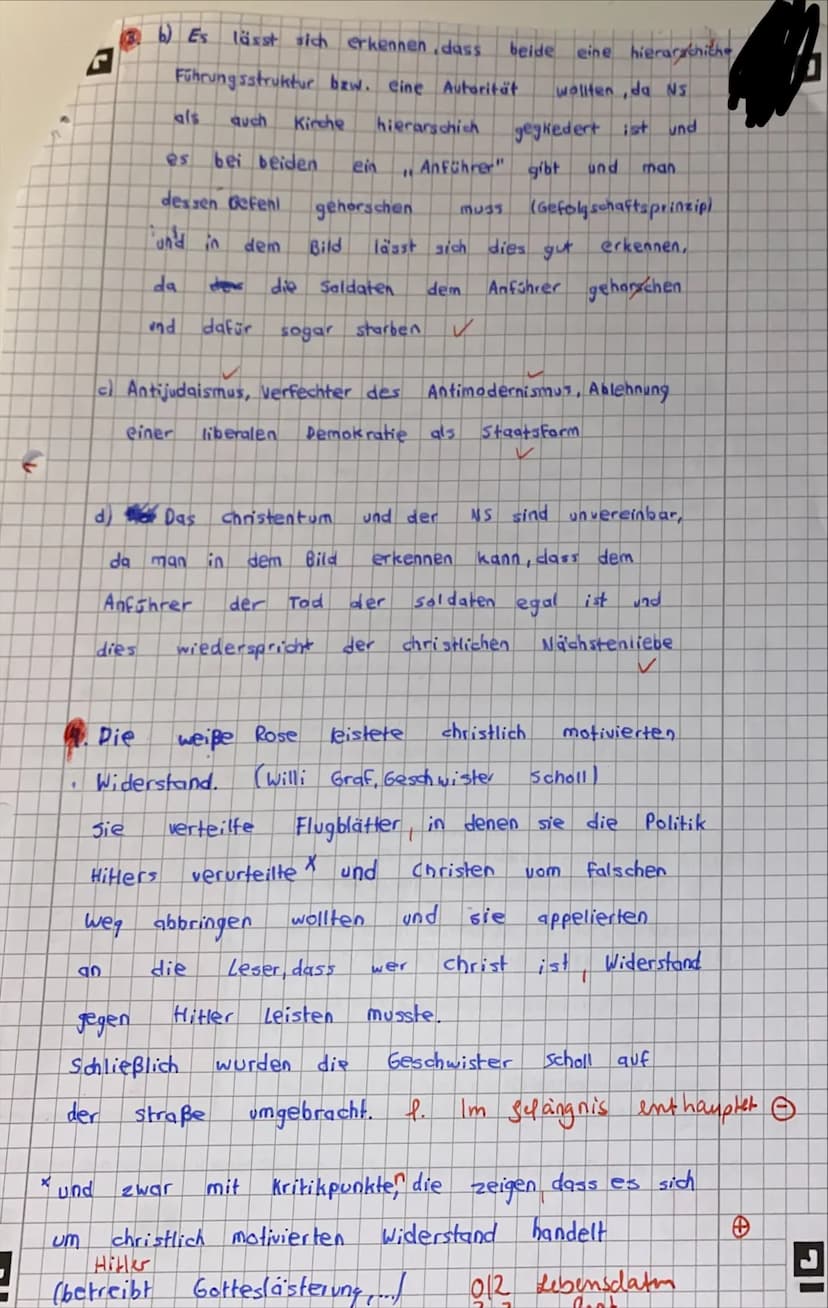 3. b) Es lässt sich erkennen, dass beide eine hierarschiche
Führungsstruktur bzw. eine Autorität wollten, da NS
als auch Kirche hierarschich gegliedert ist und
es bei beiden ein „Anführer" gibt und man
dessen Befehl gehorschen muss (Gefolgschaftsprinzip)
und in dem Bild lässt sich dies gut erkennen,
da die Soldaten dem Anführer gehorschen
und dafür sogar starben ✓
c) Antijudaismus, Verfechter des Antimodernismus, Ablehnung
einer liberalen Demokratie als Staatsform
d) Das Christentum und der NS sind unvereinbar,
da man in dem Bild erkennen kann, dass dem
Anführer der Tod der Soldaten egal ist und
dies wiederspricht der christlichen Nächstenliebe
4. Die weiße Rose leistete christlich motivierten
Widerstand. (Willi Graf, Geschwister Scholl)
Sie verteilte Flugblätter, in denen sie die Politik
Hitlers verurteilte x und Christen vom falschen
Weg abbringen wollten und sie appelierten
an die Leser, dass wer Christ ist, Widerstand
gegen Hitler leisten musste.
Schließlich wurden die Geschwister Scholl auf
der Straße umgebracht. f. Im Gefängnis enthauptet ⊖
x und zwar mit Kritikpunkten, die zeigen, dass es sich
um christlich motivierten Widerstand handelt ⊕
Hitler
(betreibt Gotteslästerung,...) 0/2 Lebensdaten